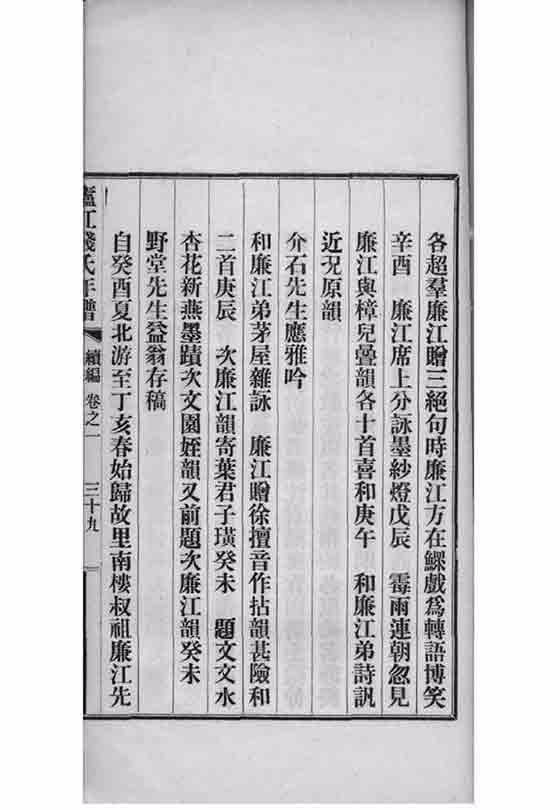 各超羣廉江贈三絕句時廉江方在鰥戲爲轉語博笑
辛酉　廉江席上分詠墨紗燈戊辰　霉雨連朝忽見
廉江與樟兒疊韻各十首喜和庚午　和廉江弟詩訊
近況原韻
介石先生應雅吟
和廉江弟茅屋雜詠　廉江贈徐擅音作拈韻甚險和
二首庚辰　次廉江韻寄葉君子璜癸未　題文文水
杏花新燕墨蹟次文園姪韻又前題次廉江韻癸未
野堂先生益翁存稿
自癸酉夏北游至丁亥春始歸故里南樓叔祖廉江先
廬江錢氏年譜　續編　卷之一　三十九